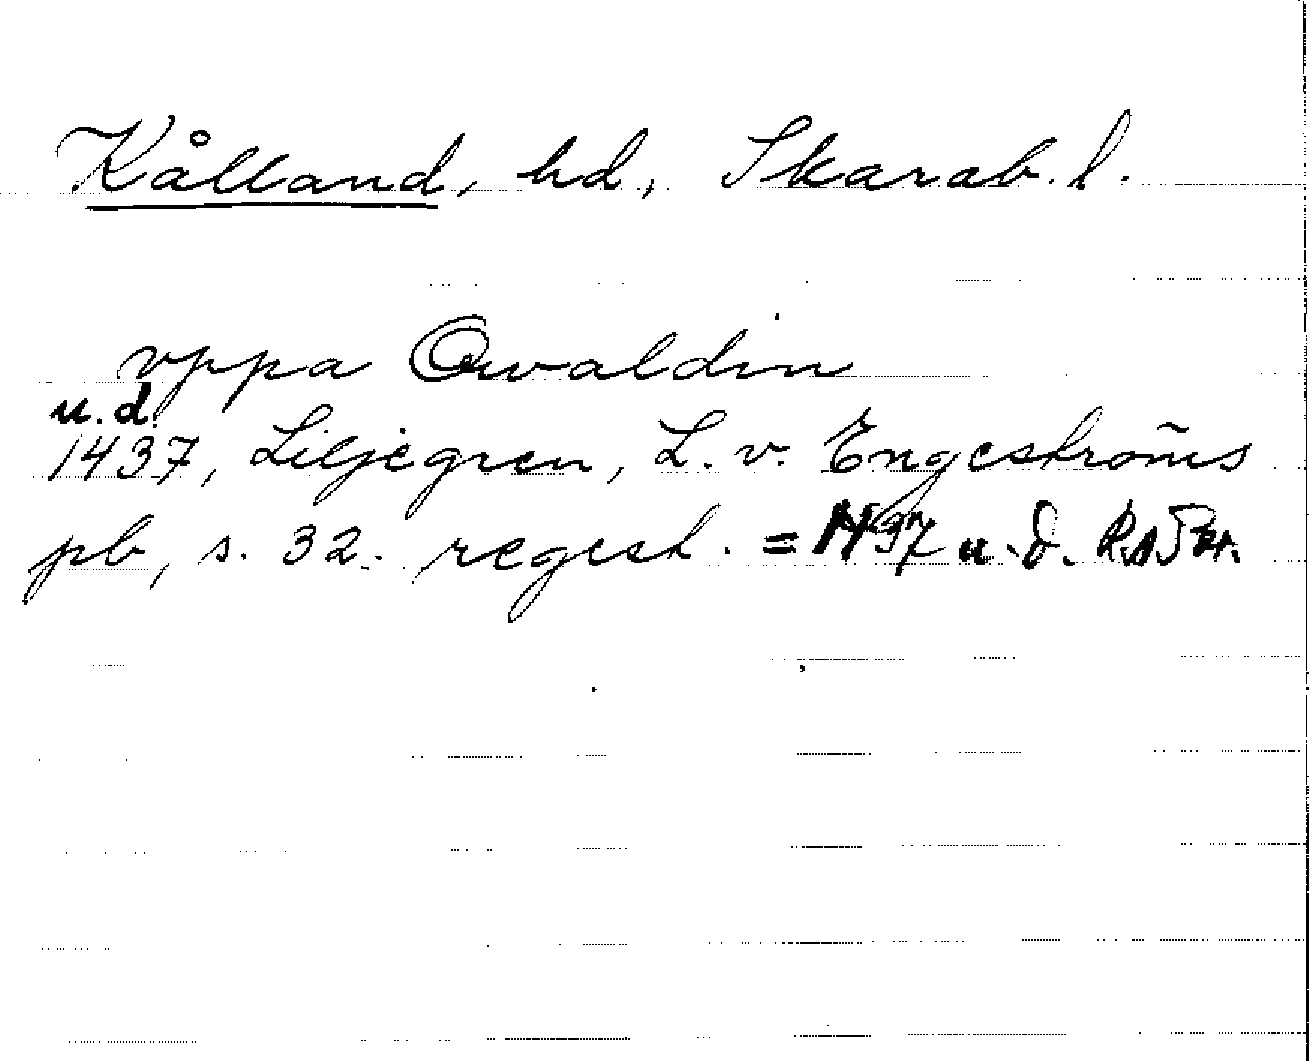 Kålland, hd, Skarab. l.
vppa Qwaldin
u. d.
1437, Liljegren, L. v. Engeströms
pb, s. 32. regest. = 1437 u. d. RAPerg.